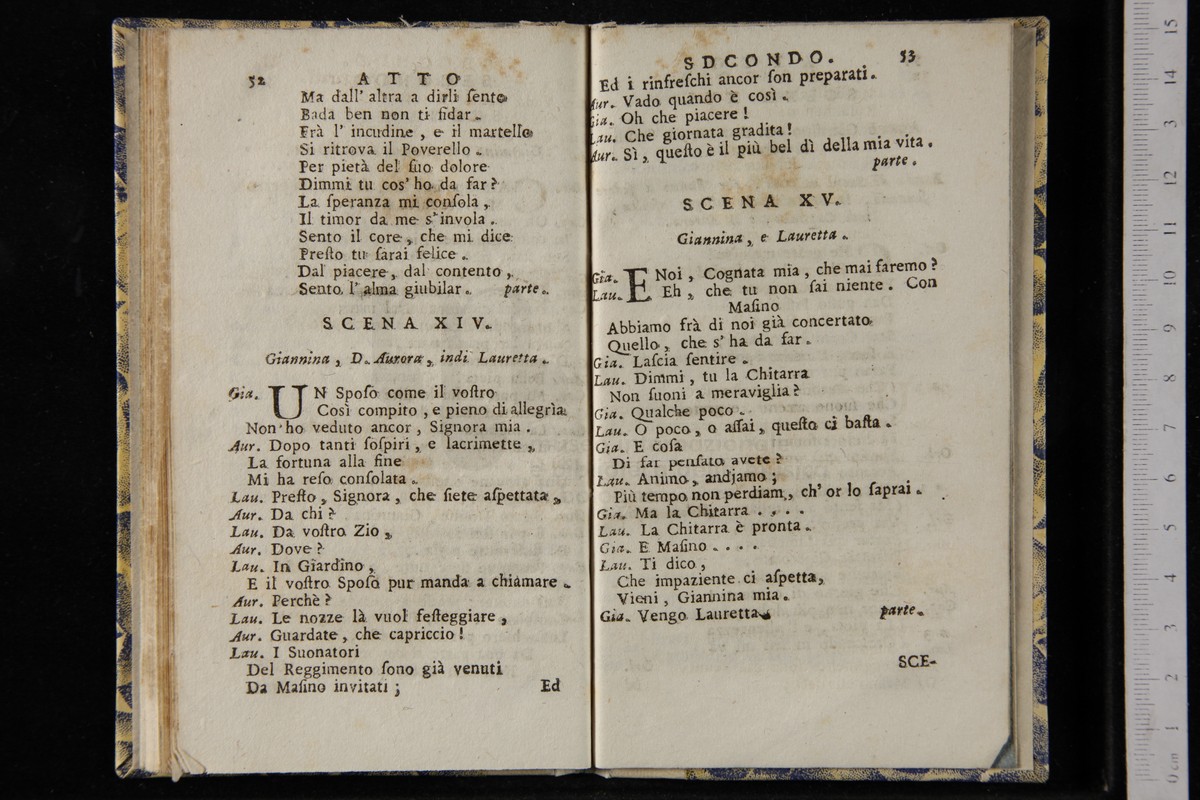 52 ATTO
Ma dall' altra a dirli ſento
Bada ben non ti fidar.
Frà l' incudine, e il martello
Si ritrova il Poverello.
Per pietà del ſuo dolore
Dimmi tu cos' ho da far?
La ſperanza mi conſola,
Il timor da me s'invola.
Sento il core, che mi dice
Preſto tu ſarai felice.
Dal piacere, dal contento,
Sento l' alma giubilar. parte.
SCENA XIV.
Giannina, D. Aurora, indi Lauretta.
Gia. UN Spoſo come il voſtro
Così compito, e pieno di allegrìa
Non ho veduto ancor, Signora mia.
Aur. Dopo tanti ſoſpiri, e lacrimette,
La fortuna alla fine
Mi ha reſo conſolata.
Lau. Preſto, Signora, che ſiete aſpettata,
Aur. Da chi?
Lau. Da voſtro Zio,
Aur. Dove?
Lau. In Giardino,
E il voſtro Spoſo pur manda a chiamare.
Aur. Perchè?
Lau. Le nozze là vuol feſteggiare,
Aur. Guardate, che capriccio!
Lau. I Suonatori
Del Reggimento ſono già venuti
Da Maſino invitati; Ed
SDCONDO. 53
Ed i rinfreſchi ancor ſon preparati.
Aur. Vado quando è così.
Gia. Oh che piacere!
Lau. Che giornata gradita!
Aur. Sì, queſto è il più bel dì della mia vita.
parte.
SCENA XV.
Giannina, e Lauretta.
Gia. E Noi, Cognata mia, che mai faremo?
Lau. Eh, che tu non ſai niente. Con
Maſino
Abbiamo frà di noi già concertato
Quello, che s' ha da far.
Gia. Laſcia ſentire.
Lau. Dimmi, tu la Chitarra
Non ſuoni a meraviglia?
Gia. Qualche poco.
Lau. O poco, o aſſai, queſto ci baſta.
Gia. E coſa
Di far penſato avete?
Lau. Animo, andjamo;
Più tempo non perdiam, ch' or lo ſaprai.
Gia. Ma la Chitarra ....
Lau. La Chitarra è pronta.
Gia. E Maſino ....
Lau. Ti dico,
Che impaziente ci aſpetta,
Vieni, Giannina mia.
Gia. Vengo Lauretta. parte.
SCE-
0 cm 1 2 3 4 5 6 7 8 9 10 11 12 13 14 15